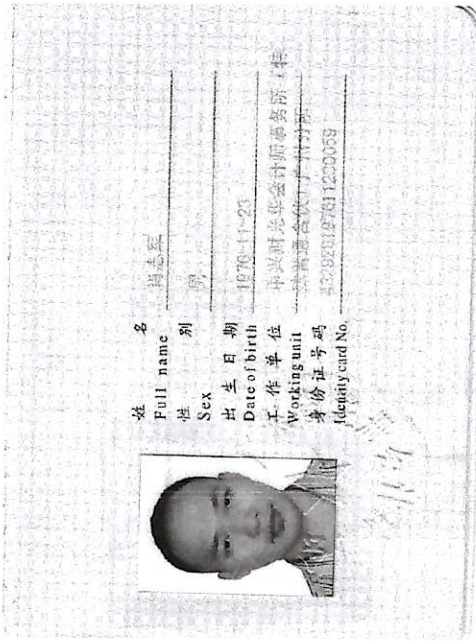 姓 名
Full name
性 别 男
Sex
出 生 日 期 1976-11-23
Date of birth
工 作 单 位 中兴财光华会计师事务所(特
Working unit 殊普通合伙)广州分所
身份证号码
Identity card No.